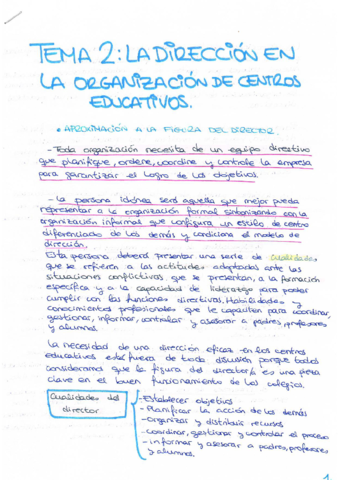 TEMA 2: LA DIRECCIÓN EN
LA ORGANIZACIÓN DE CENTROS
EDUCATIVOS.
• APROXIMACIÓN A LA FIGURA DEL DIRECTOR.
- Toda organización necesita de un equipo directivo
que planifique, ordene, coordine y controle la empresa
para garantizar el logro de los objetivos.
- La persona idónea será aquella que mejor pueda
representar a la organización formal sintonizando con la
organización informal que configura un estilo de centro
diferenciador de los demás y condiciona el modelo de
dirección.
Esta persona deberá presentar una serie de cualidades
que se refieren a las actitudes adoptadas ante las
situaciones conflictivas que se presentan, a la formación
específica y a la capacidad de liderazgo para poder
cumplir con las funciones directivas. Habilidades y
conocimientos profesionales que le capaciten para coordinar,
gestionar, informar, controlar y asesorar a padres, profesores
y alumnos.
La necesidad de una dirección eficaz en los centros
educativos está fuera de toda discusión porque todos
consideramos que la figura del director/a es una pieza
clave en el buen funcionamiento de los colegios.
Cualidades del
director
- Establecer objetivos
- Planificar la acción de los demás
- Organizar y distribuir recursos
- coordinar, gestionar y controlar el proceso
- informar y asesorar a padres, profesores
y alumnos.
1.